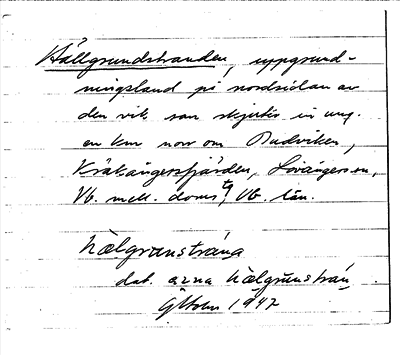 Hällgrundstranden, uppgrund-
ningsland på nordsidan av
den vik som skjuter in ung.
en km norr om Budviken,
Kräkångersfjärden, Lövångers sn,
Vb. mell. doms tg, Vb. län.
hälgrunstráńa
dat. azna hälgrünstráń
G Ohlson 1947